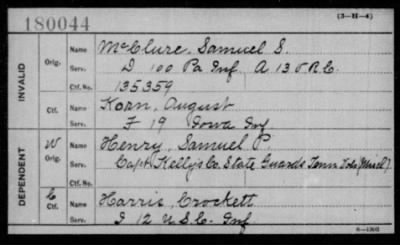 180044
(3—H—4)
INVALID
Orig.
Name McClure, Samuel S.
Serv. D 100 Pa Inf. A 13 V.R.C.
Ctf. No. 135359
Ctf.
Name Korn, August
Serv. F 19 Iowa Inf
DEPENDENT
W
Orig.
Name Henry, Samuel P.
Serv. Capt. Kelly's Co. State Guards Tenn Vols
Ctf. No.
C
Ctf.
Name Harris, Crockett
Serv. I 12 U.S.C. Inf.